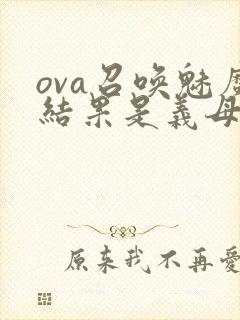 ova召唤魅魔
結果是義母
原来我不再愛